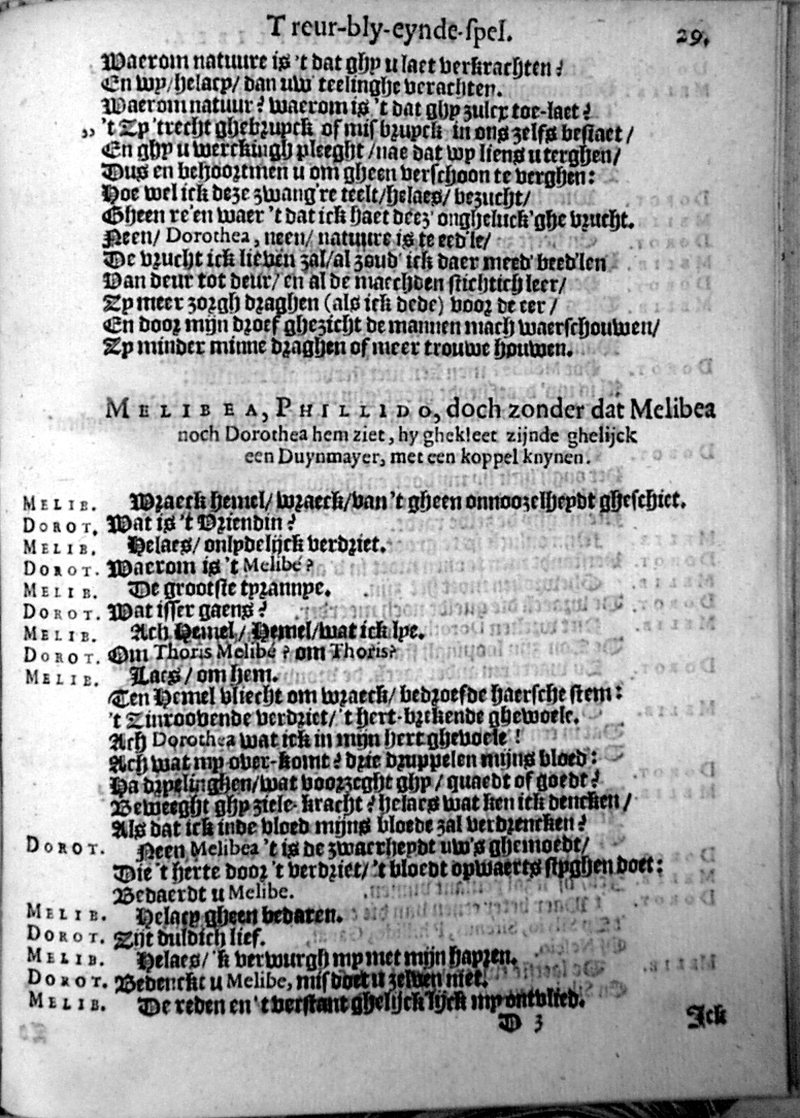 Treur-bly-eynde-spel. 29.
Waerom natuure is 't dat ghy u laet verkrachten?
En wy/helacy/ dan uw' teelinghe verachten.
Waerom natuur? waerom is 't dat ghy zulcx toe-laet?
,, 't Zy 'trecht ghebruyck of misbruyck in ons zelfs bestaet/
En ghy u werckingh pleeght/nae dat wy liens u terghen/
Dus en behoortmen u om gheen verschoon te verghen:
Hoe wel ick deze zwang're teelt/helaes/ bezucht/
Gheen re'en waer 't dat ick haet deez' ongheluck'ghe vrucht.
Neen/ Dorothea, neen/ natuure is te eed'le/
De vrucht ick lieven zal/al zoud' ick daer meed' beed'len
Van deur tot deur/ en al de maechden stichtich leer/
Zy meer zorgh draghen (als ick dede) voor de eer/
En door mijn droef ghezicht de mannen mach waerschouwen/
Zy minder minne draghen of meer trouwe houwen.
MELIBEA, PHILLIDO, doch zonder dat Melibea
noch Dorothea hem ziet, hy ghekleet zijnde ghelijck
een Duynmayer, met een koppel knynen.
MELIB. Wraeck hemel/ wraeck/van 't gheen onnoozelheydt gheschiet.
DOROT. Wat is 't Vriendin?
MELIB. Helaes/ onlydelijck verdriet.
DOROT. Waerom is 't Melibé?
MELIB. De grootste tyrannye.
DOROT. Wat isser gaens?
MELIB. Ach Hemel/ Hemel/wat ick lye.
DOROT. Om Thoris Melibé? om Thoris?
MELIB. Laes/ om hem.
Ten Hemel vliecht om wraeck/ bedroefde haersche stem:
't Zinroovende verdriet/ 't hert-brekende ghewoele.
Ach Dorothea wat ick in mijn hert ghevoele!
Ach wat my over-komt? drie druppelen mijns bloed:
Ha drypelinghen/wat voorzeght ghy/ quaedt of goedt?
Beweeght ghy ziele-kracht? helaes wat ken ick dencken/
Als dat ick inde vloed mijns bloeds zal verdrencken?
DOROT. Neen Melibea 't is de zwaerheydt uw's ghemoedt/
Die 't herte door 't verdriet/ 't bloedt opwaerts styghen doet:
Bedaerdt u Melibe.
MELIB. Helacy gheen bedaren.
DOROT. Zijt duldich lief.
MELIB. Helaes/ 'k verwurgh my met mijn hayren.
DOROT. Bedenckt u Melibe, misdoet u zelven niet.
MELIB. De reden en 't verstant ghelijck lijck my ontvlied.
D 3 Ick